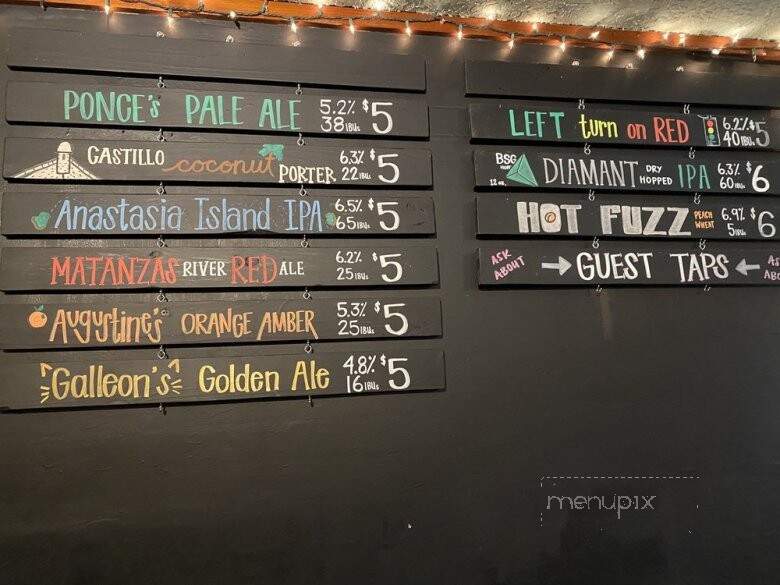 PONCE'S PALE ALE 5.2% $5
38 IBUs
CASTILLO coconut PORTER 6.3% $5
22 IBUs
Anastasia Island IPA 6.5% $5
65 IBUs
MATANZAS RIVER RED ALE 6.2% $5
25 IBUs
Augustine's ORANGE AMBER 5.3% $5
25 IBUs
Galleon's Golden Ale 4.8% $5
16 IBUs
LEFT turn on RED 6.2% $5
40 IBUs
BSG
12 oz.
DIAMANT DRY HOPPED IPA 6.3% $6
60 IBUs
HOT FUZZ PEACH WHEAT 6.9% $6
5 IBUs
ASK ABOUT → GUEST TAPS ← AS
ABO
menupix